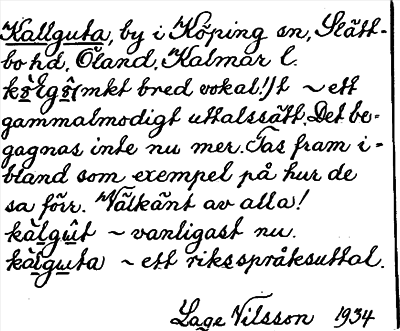 Kallguta, by i Köping sn, Slätt-
bo hd, Öland, Kalmar l.
kålgô(mkt bred vokal!)t ~ ett
gammalmodigt uttalssätt. Det be-
gagnas inte nu mer. Tas fram i-
bland som exempel på hur de
sa förr. Välkänt av alla!
kàlgût ~ vanligast nu.
kàlguta ~ ett riksspråksuttal.
Lage Nilsson 1934